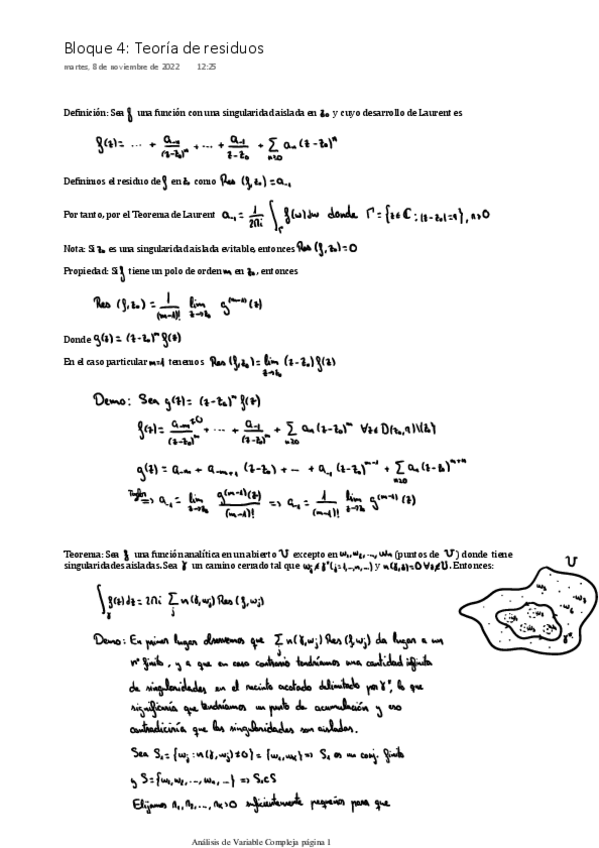 Bloque 4: Teoría de residuos
martes, 8 de noviembre de 2022 12:25
Definición: Sea f una función con una singularidad aislada en z₀ y cuyo desarrollo de Laurent es
f(z) = ... + a₋ₙ/(z-z₀)ⁿ + ... + a₋₁/(z-z₀) + Σ_{n≥0} aₙ(z-z₀)ⁿ
Definimos el residuo de f en z₀ como Res (f,z₀) = a₋₁
Por tanto, por el Teorema de Laurent a₋₁ = 1/(2πi) ∫_Γ f(w)dw donde Γ = {z∈ℂ : |z-z₀|=r}, r>0
Nota: Si z₀ es una singularidad aislada evitable, entonces Res (f,z₀) = 0
Propiedad: Si f tiene un polo de orden m en z₀, entonces
Res (f,z₀) = 1/(m-1)! lim_{z→z₀} g^(m-1)(z)
Donde g(z) = (z-z₀)^m f(z)
En el caso particular m=1 tenemos Res (f,z₀) = lim_{z→z₀} (z-z₀) f(z)
Demo: Sea g(z) = (z-z₀)^m f(z)
f(z) = a₋ₘ^{≠0}/(z-z₀)^m + ... + a₋₁/(z-z₀) + Σ_{n≥0} aₙ(z-z₀)ⁿ ∀z∈D(z₀,r)\{z₀}
g(z) = a₋ₘ + a₋ₘ₊₁ (z-z₀) + ... + a₋₁ (z-z₀)^{m-1} + Σ_{n≥0} aₙ(z-z₀)^{m+n}
Taylor => a₋₁ = lim_{z→z₀} g^(m-1)(z)/(m-1)! => a₋₁ = 1/(m-1)! lim_{z→z₀} g^(m-1)(z)
Teorema: Sea f una función analítica en un abierto U excepto en w₁,w₂,...,wₙ (puntos de U) donde tiene
singularidades aisladas. Sea γ un camino cerrado tal que wⱼ∉γ*(j=1,..,n,...) y n(γ,z)=0 ∀z∉U. Entonces:
U
∫_γ f(z)dz = 2πi Σ_j n(γ,wⱼ) Res (f,wⱼ)
Demo: En primer lugar observemos que Σ_j n(γ,wⱼ) Res (f,wⱼ) da lugar a un
nº finito, y a que en caso contrario tendríamos una cantidad infinita
de singularidades en el recinto acotado delimitado por γ*, lo que
significaría que tendríamos un punto de acumulación y eso
contradiciría que las singularidades son aisladas.
Sea S₁ = {wⱼ : n(γ,wⱼ)≠0} = {w₁,..,wₖ} => S₁ es un conj. finito
y S = {w₁,w₂,...,wₙ,...} => S₁⊂S
Elijamos r₁, r₂,..., rₖ>0 suficientemente pequeños para que
Análisis de Variable Compleja página 1